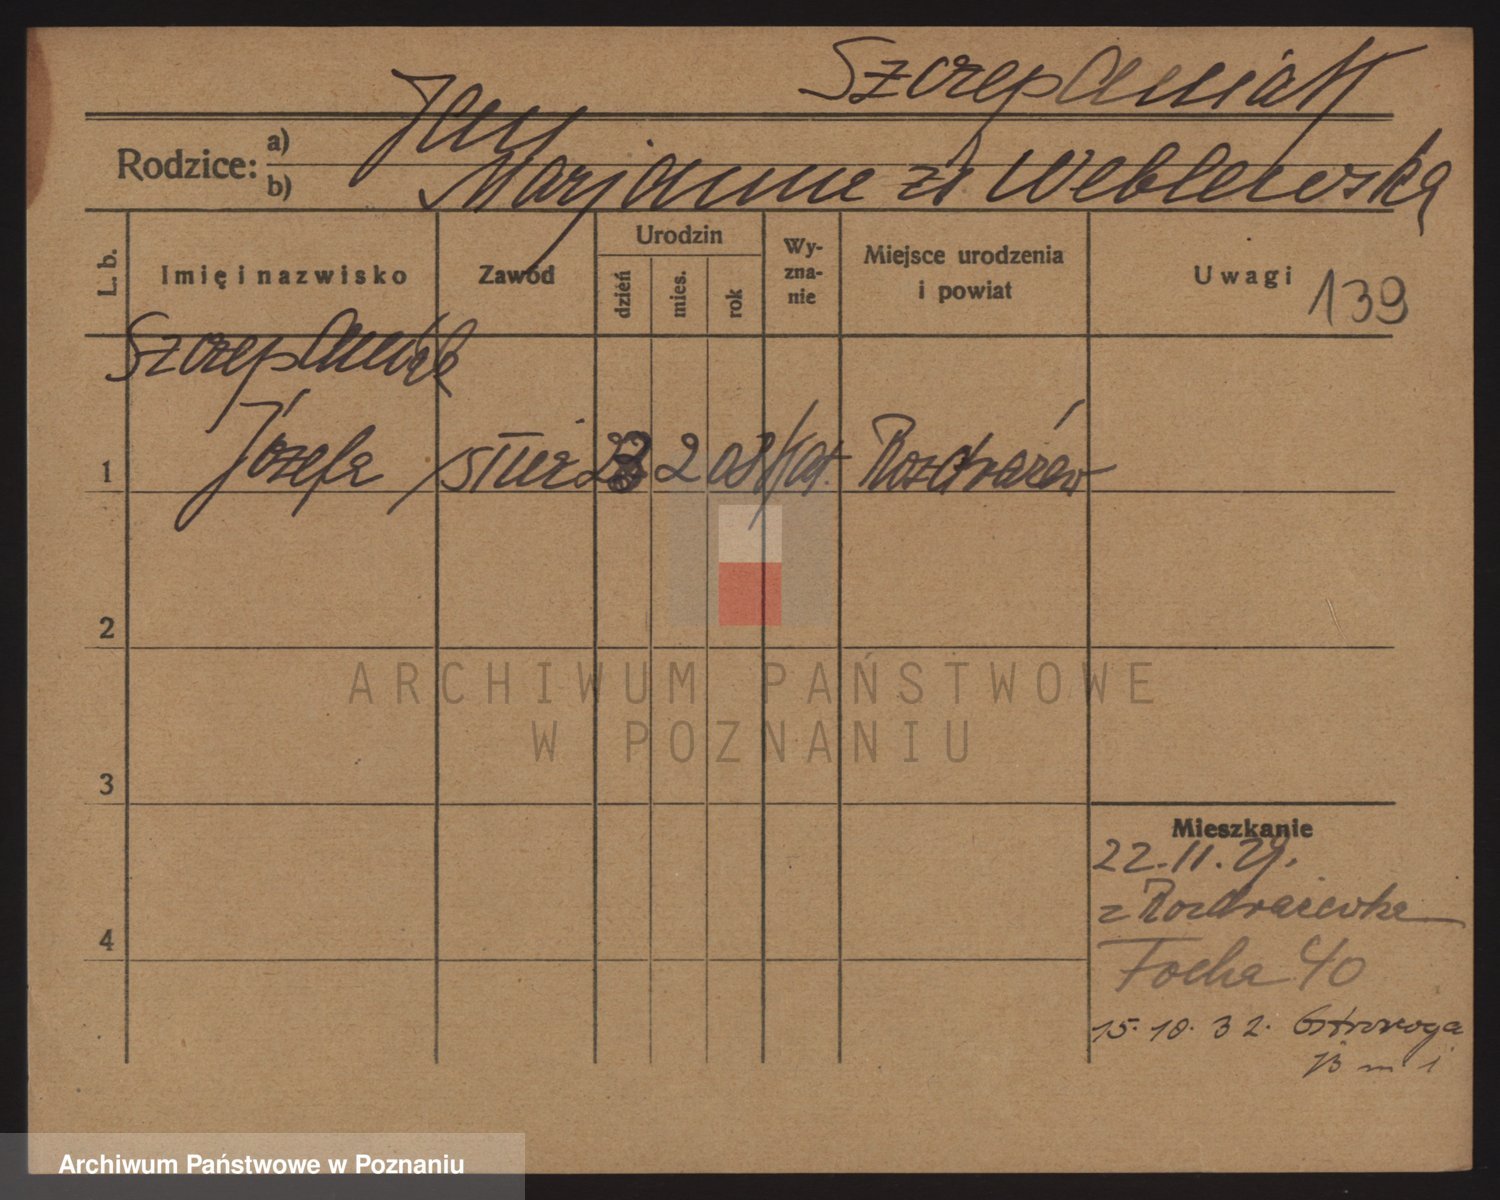 Szczepaniak
Rodzice:
a) Jan
b) Marjanna zd Weblewska
L. b.
Imię i nazwisko
Zawód
Urodzin
dzień
mies.
rok
Wy-
zna-
nie
Miejsce urodzenia
i powiat
Uwagi
139
Szczepaniak
1 Józefa służ 2 08 kat. Rozdrażew
2
3
4
Mieszkanie
22.11.29.
z Rozdrażewka
Focha 40
15.10.32. Ostroroga
m 1
ARCHIWUM PAŃSTWOWE
W POZNANIU
Archiwum Państwowe w Poznaniu